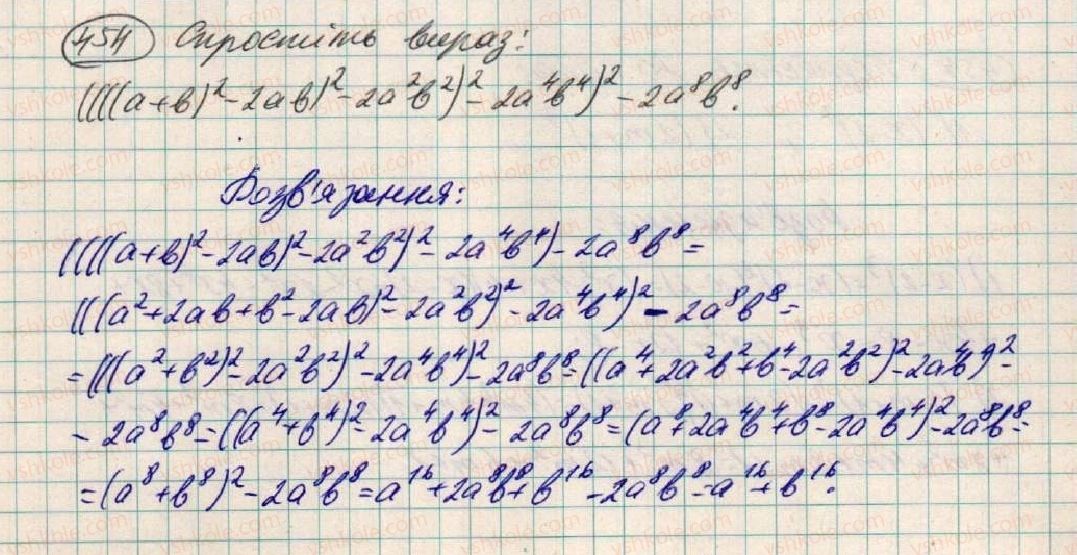 454 Спростіть вираз:
((((a+b)²-2ab)²-2a²b²)²-2a⁴b⁴)²-2a⁸b⁸.
Розв'язання:
((((a+b)²-2ab)²-2a²b²)²-2a⁴b⁴)-2a⁸b⁸=
(((a²+2ab+b²-2ab)²-2a²b²)²-2a⁴b⁴)²-2a⁸b⁸=
=(((a²+b²)²-2a²b²)²-2a⁴b⁴)²-2a⁸b⁸=((a⁴+2a²b²+b⁴-2a²b²)²-2a⁴b⁴)²-
-2a⁸b⁸=((a⁴+b⁴)²-2a⁴b⁴)²-2a⁸b⁸=(a⁸+2a⁴b⁴+b⁸-2a⁴b⁴)²-2a⁸b⁸=
=(a⁸+b⁸)²-2a⁸b⁸=a¹⁶+2a⁸b⁸+b¹⁶-2a⁸b⁸=a¹⁶+b¹⁶.